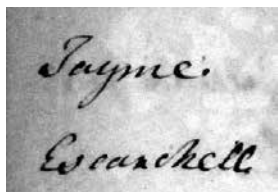 Jayme.
Escanchell